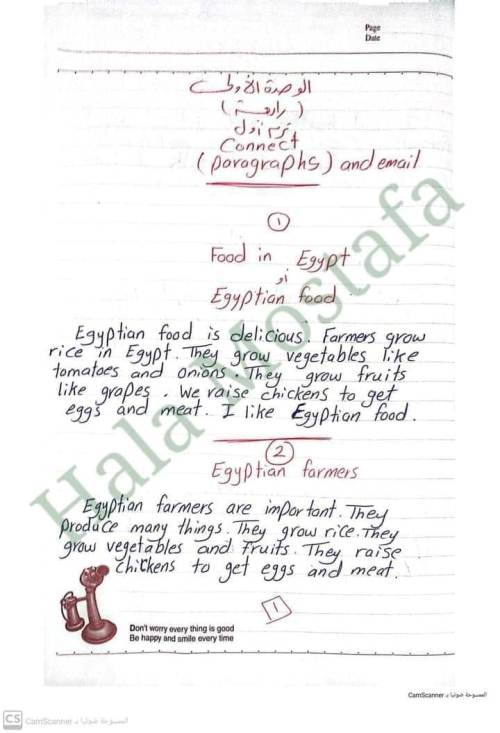 Page
Date
الوحدة الأولى
( رابعة )
ترم أول
Connect
(paragraphs) and email
1
Food in Egypt
أو
Egyptian food
Egyptian food is delicious. Farmers grow
rice in Egypt. They grow vegetables like
tomatoes and onions. They grow fruits
like grapes. We raise chickens to get
eggs and meat. I like Egyptian food.
2
Egyptian farmers
Egyptian farmers are important. They
produce many things. They grow rice. They
grow vegetables and fruits. They raise
chickens to get eggs and meat.
1
Don't worry every thing is good
Be happy and smile every time
Hala Mostafa
CamScanner الممسوحة ضوئيا بـ
CS CamScanner الممسوحة ضوئيا بـ